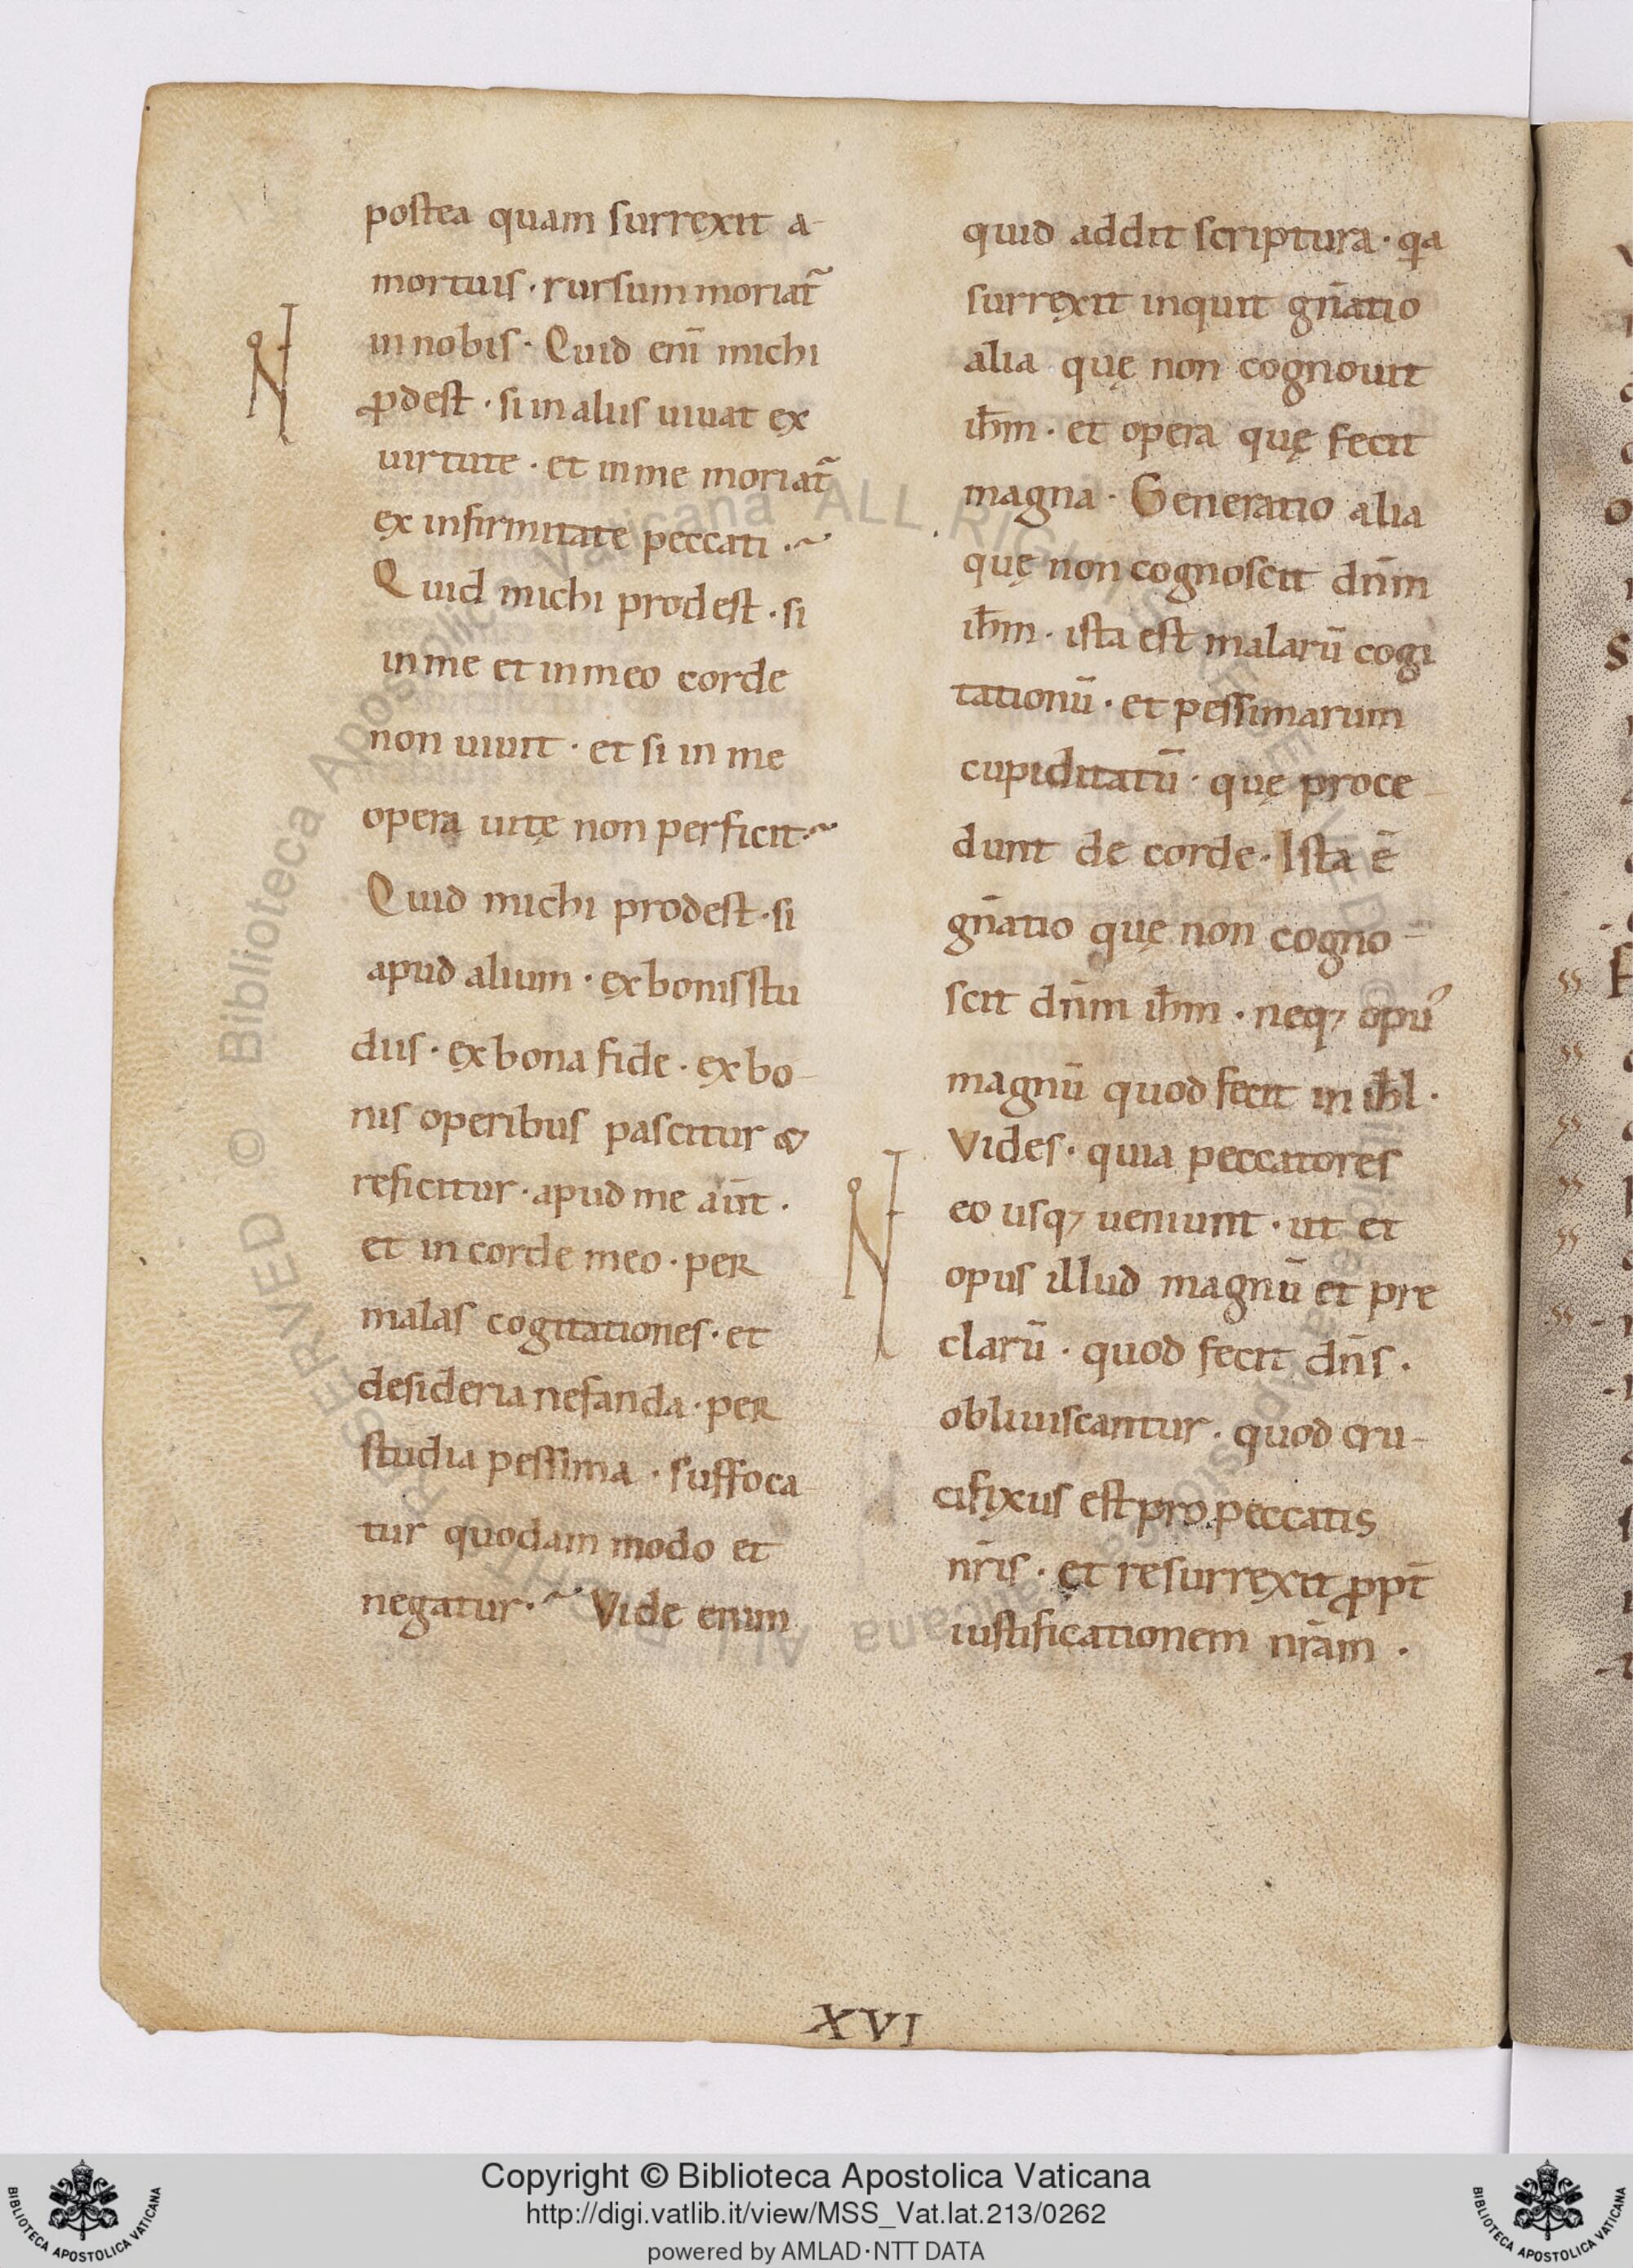 postea quam surrexit a-
mortuis · rursum moriat̃
in nobis · Quid eni̅ michi
ꝓdest · si in aliis uiuat ex
uirtute · et in me moriat̃
ex infirmitate peccati ·~
Quid michi prodest · si
in me et in meo corde
non uiuit · et si in me
opera uitę non perficit·~
Quid michi prodest · si
apud alium · ex bonis stu
diis · ex bona fide · ex bo-
nis operibus pascitur &
reficitur · apud me aut̅ ·
et in corde meo · per
malas cogitationes · et
desideria nefanda · per
studia pessima · suffoca-
tur quodam modo et
negatur ·~ Vide enim
quid addit scriptura · qa
surrexit inquit gn̅atio
alia quę non cognouit
ih̅m · et opera quę fecit
magna · Generatio alia
quę non cognoscit dn̅m
ih̅m · ista est malaru̅ cogi
tationu̅ · et pessimarum
cupiditatu̅ · quę proce-
dunt de corde · Ista e̅
gn̅atio quę non cogno-
scit dn̅m ih̅m · neq; opuꝰ
magnu̅ quod fecit in ih̅l ·
Vides · quia peccatores
eo usq; ueniunt · ut et
opus illud magnu̅ et pre
claru̅ · quod fecit dn̅s ·
obliuiscantur · quod cru-
cifixus est pro peccatis
nr̅is · et resurrexit ꝓpt̅
iustificationem nr̅am ·
XVI
Copyright © Biblioteca Apostolica Vaticana
http://digi.vatlib.it/view/MSS_Vat.lat.213/0262
powered by AMLAD·NTT DATA